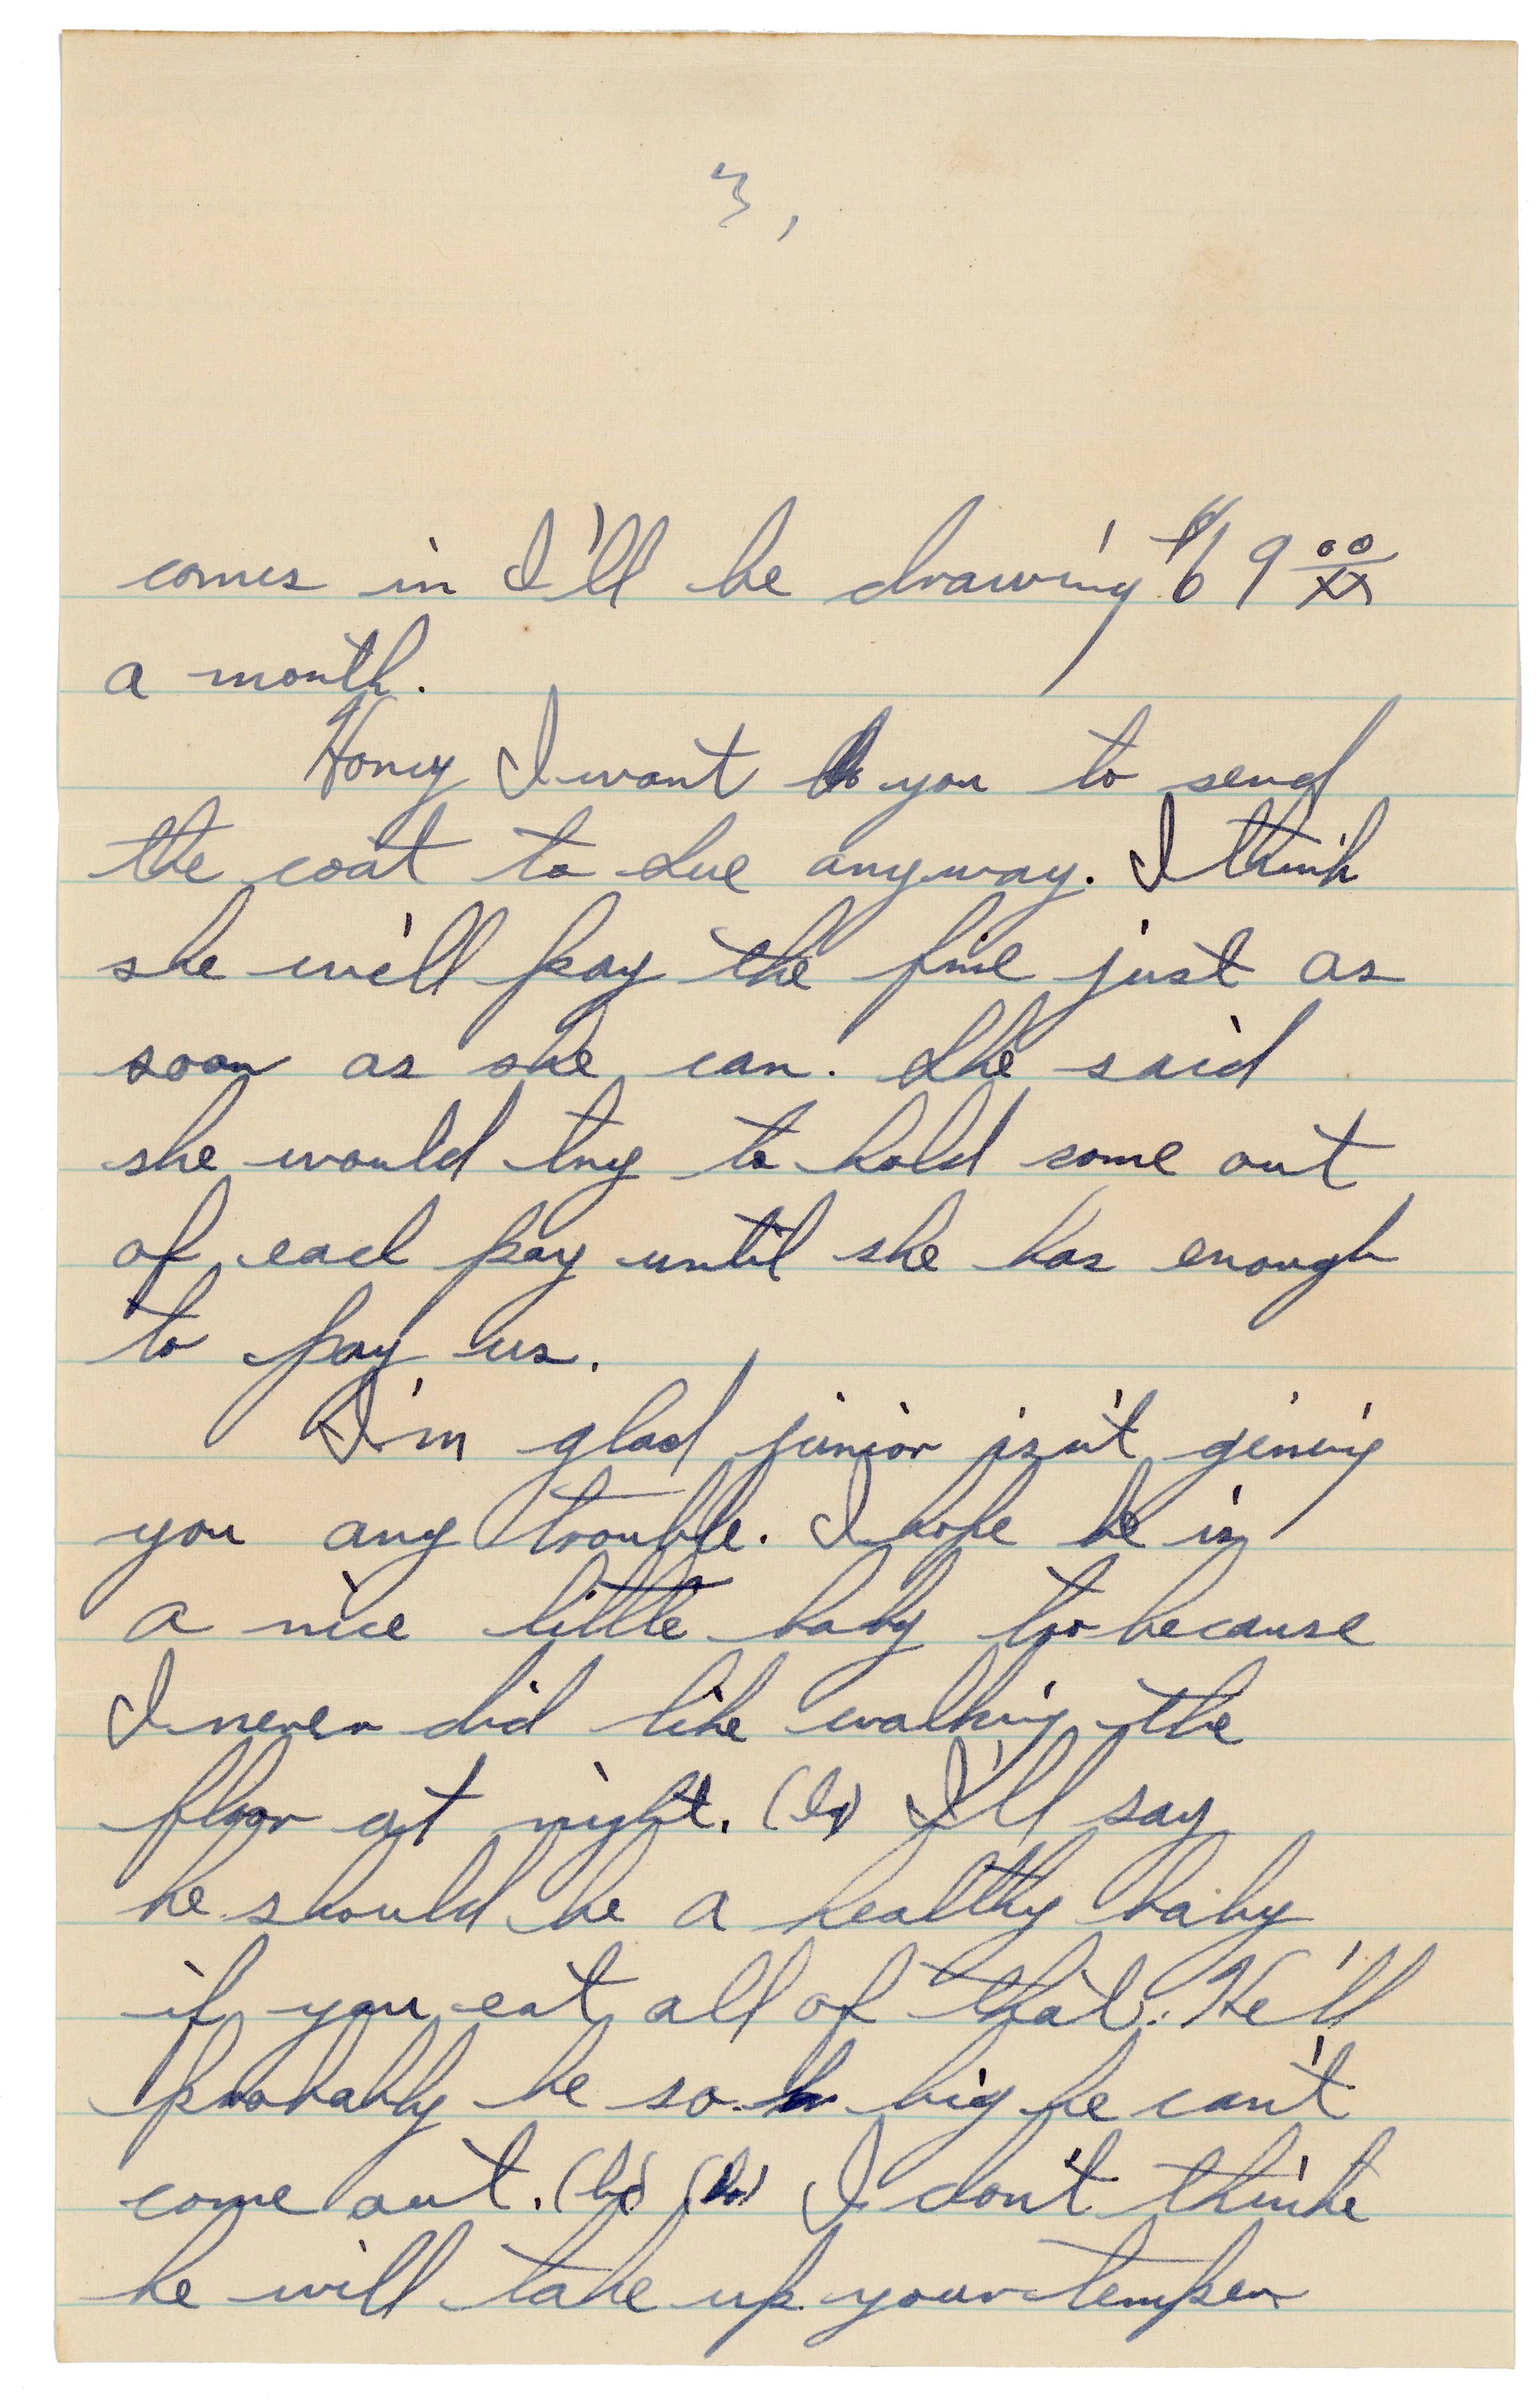 3,
comes in I'll be drawing $69 00/xx
a month.
Honey I want you to send
the coat to Sue anyway. I think
she will pay the fine just as
soon as she can. She said
she would try to hold some out
of each pay until she has enough
to pay us.
I'm glad junior isn't giving
you any trouble. I hope he is
a nice little baby too because
I never did like walking the
floor at night. (ha) I'll say
he should be a healthy baby
if you eat all of that. He'll
probably be so big he can't
come out. (ha) (ha) I don't think
he will take up your temper